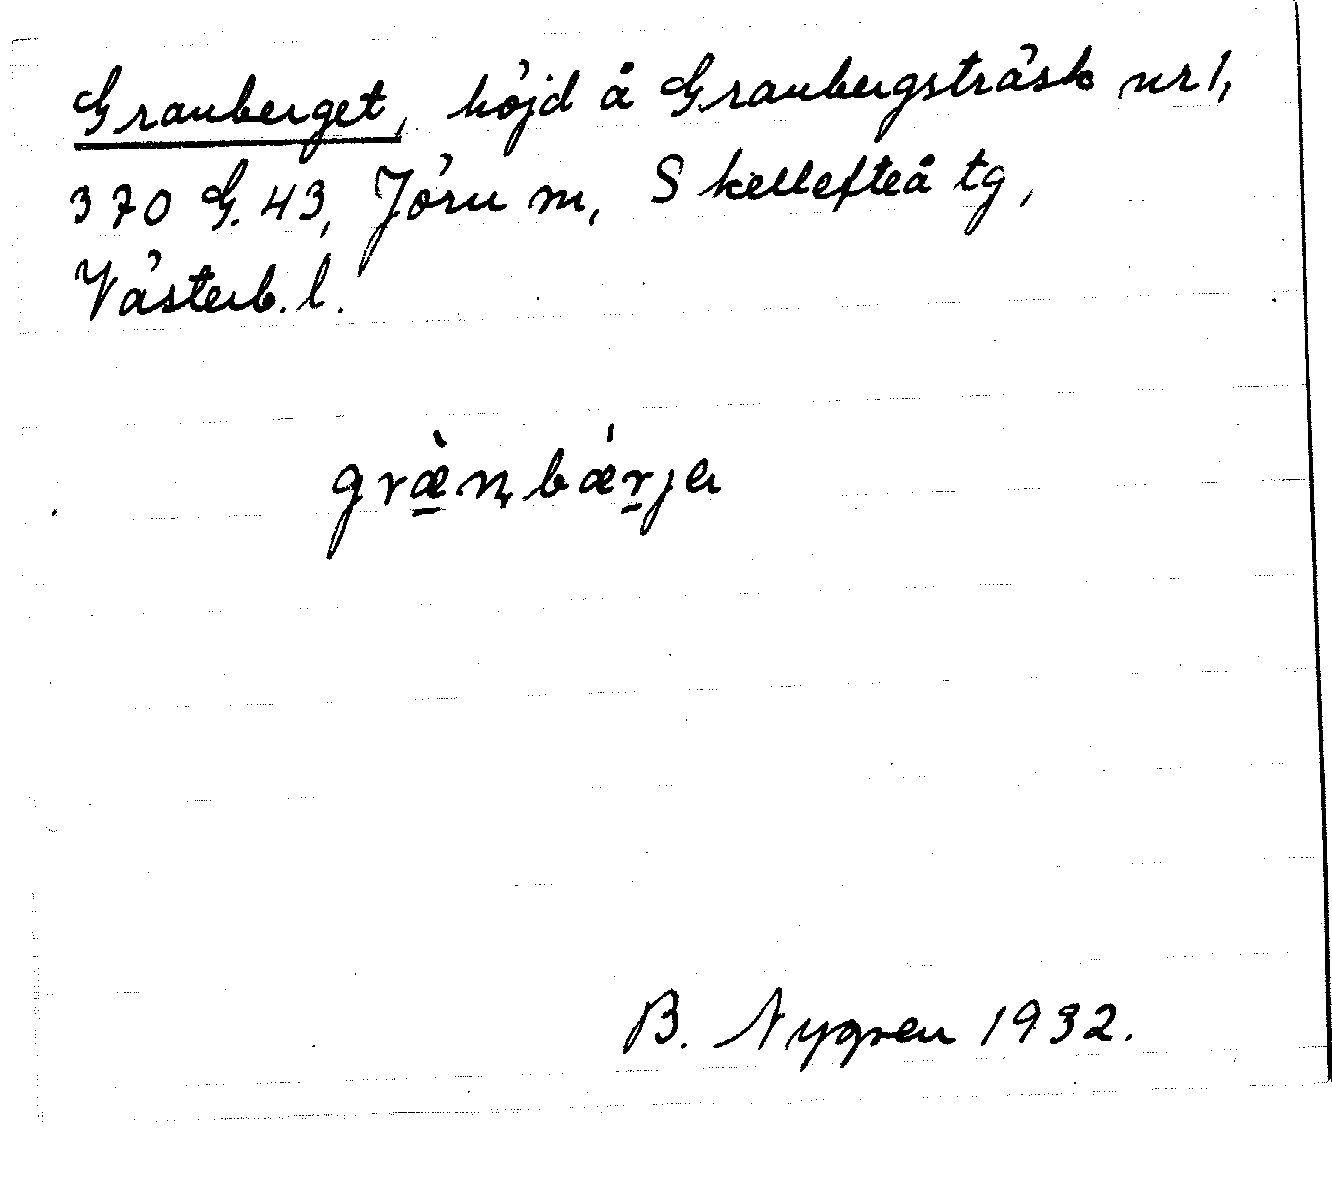 Granberget, höjd å Granbergsträsk nr 1,
370 G. 43, Jörn m, Skellefteå tg,
Västerb. l.
græ̱̀ɳbǽṟja
B. Nygren 1932.